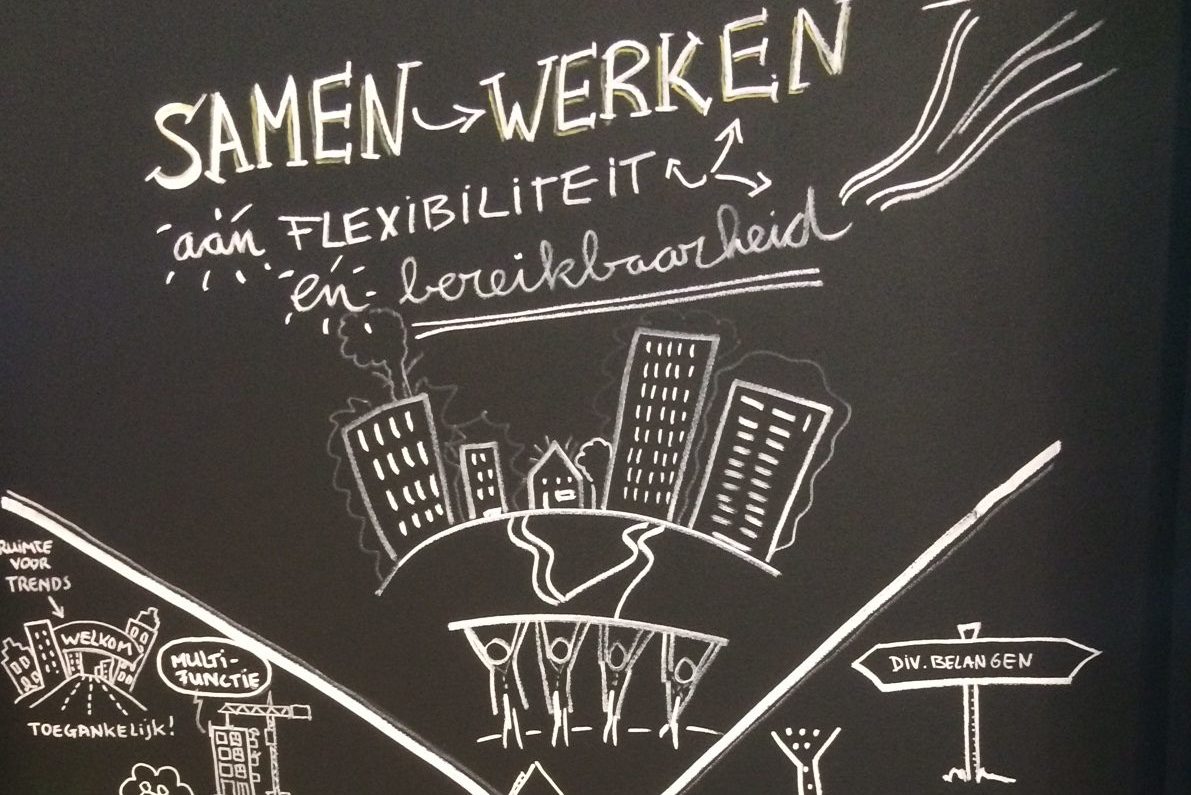 SAMEN WERKEN
aán FLEXIBILITEIT
én bereikbaarheid
RUIMTE
VOOR
TRENDS
WELKOM
TOEGANKELIJK!
MULTI-
FUNCTIE
DIV. BELANGEN